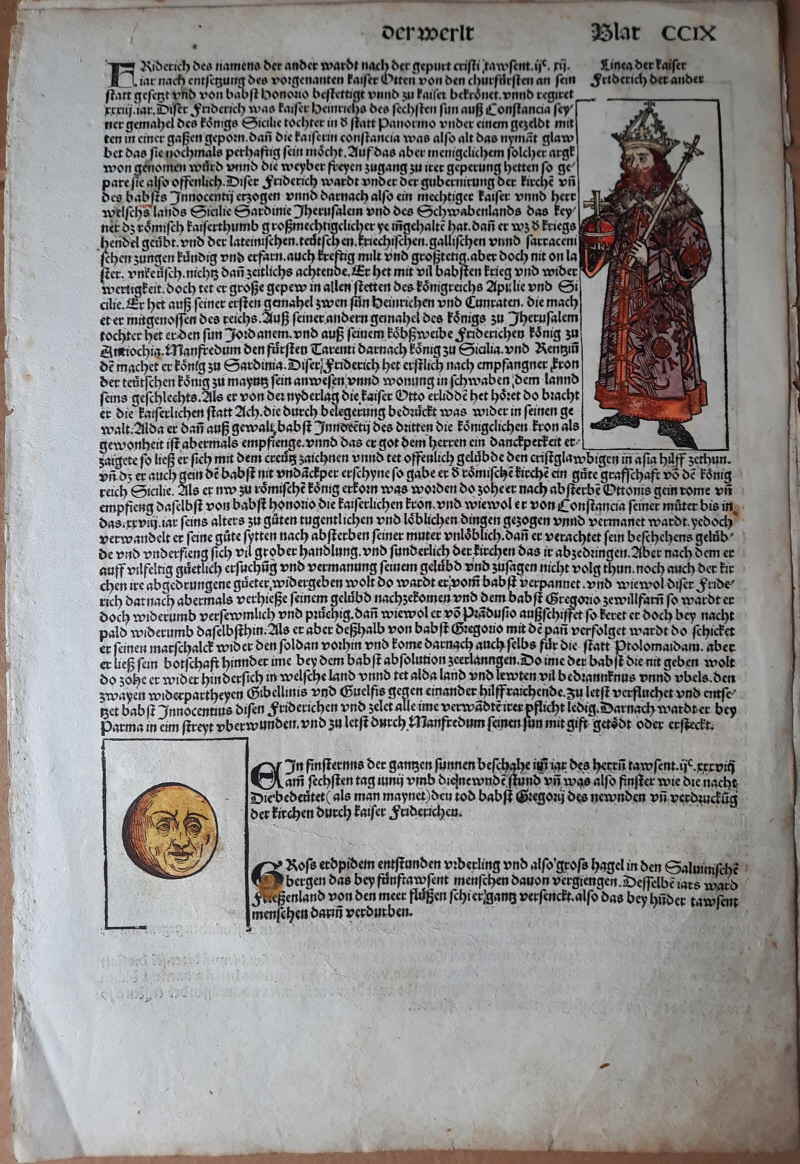 der werlt
Blat CCIX
Linea der kaiser
Friderich der ander
FRiderich des namens der ander wardt nach der gepurt cristi tawsent.ijᶜ. xij.
iar nach entsetzung des vorgenanten kaiser Otten von den churfürsten an sein
statt gesetzt vnd von babst honorio bestettigt vnnd zu kaiser bekrönet. vnnd regiret
xxxiij. iar. Diser Friderich was kaiser heinrichs des sechsten sun auß Constancia sey-
ner gemahel des königs Sicilie tochter in d̕ statt Panormo vnder einem gezeldt mit
ten in einer gaßen geporn. dañ die kaiserin constancia was also alt das nymāt glaw
bet das sie nochmals perhaftig sein möcht. Auf das aber menigclichem solcher argk
won genomen würd vnnd die weyber freyen zugang zu irer geperung hetten so ge-
pare sie also offenlich. Diser Friderich wardt vnder der gubernirung der kirchē vñ
des babsts Innocentij erzogen vnnd darnach also ein mechtiger kaiser vnnd herr
welschs lands Sicilie Sardinie Jherusalem vnd des Schwabenlands das key-
ner dz römisch kaiserthumb großmechtigclicher ye inngehaltē hat. dañ er wz d̕ kriegs
hendel geübt. vnd der lateinischen. teütschen. kriechischen. gallischen vnnd sarraceni
schen zungen kündig vnd erfarn. auch kreftig milt vnd großtetig. aber doch nit on la
ster. vnkeüsch. nichtz dañ zeitlichs achtende. Er het mit vil babsten krieg vnd wider
wertigkeit. doch tet er große gepew in allen stetten des königreichs Apulie vnd Si
cilie. Er het auß seiner ersten gemahel zwen sün heinrichen vnd Cunraten. die mach
et er mitgenossen des reichs. Auß seiner andern gemahel des königs zu Jherusalem
tochter het er den sun Jordanem. vnd auß seinem köbßweibe Friderichen könig zu
Antiochia. Manfredum den fürsten Tarenti darnach könig zu Sicilia. vnd Rentzin̄
dē machet er könig zu Sardinia. Diser Friderich het erstlich nach empfangner kron
der teütschen könig zu mayntz sein anwesen vnnd wonung in schwaben dem lannd
seins geschlechts. Als er von der nyderlag die kaiser Otto erliddē het höret do bracht
er die kaiserlichen statt Ach. die durch belegerung bedrückt was wider in seinen ge
walt. Alda er dañ auß gewalt babst Innocētij des dritten die königclichen kron als
gewonheit ist abermals empfienge. vnnd das er got dem herren ein danckperkeit er-
zaigete so ließ er sich mit dem creütz zaichnen vnnd tet offenlich gelübde den cristglawbigen in asia hilff zethun.
vñ. dz er auch gein dē babst nit vndāckper erschyne so gabe er d̕ römischē kirchē ein gute graffschaft vō dē könig
reich Sicilie. Als er nw zu römischē könig erkorn was worden do zohe er nach absterbē Ottonis gein rome vñ
empfieng daselbst von babst honorio die kaiserlichen kron. vnd wiewol er von Constancia seiner muter bis in
das. xxviij. iar seins alters zu guten tugentlichen vnd löblichen dingen gezogen vnnd vermanet wardt. yedoch
verwandelt er seine gute sytten nach absterben seiner muter vnlöblich. dañ er verachtet sein beschehens gelüb-
de vnd vnderfieng sich vil grober handlung. vnd sunderlich der kirchen das ir abzedringen. Aber nach dem er
auff vilfeltig gütlich ersuchūg vnd vermanung seinem gelübd vnd zusagen nicht volg thun. noch auch der kir
chen ire abgedrungene güeter widergeben wolt do wardt er vom babst verpannet. vnd wiewol diser Fride-
rich darnach abermals verhieße seinem gelübd nachzekomen vnd dem babst Gregorio zewillfarn̄ so wardt er
doch widerumb versewmlich vnd prüchig. dañ wiewol er vō Prādusio außschiffet so keret er doch bey nacht
pald widerumb daselbsthin. Als er aber deßhalb von babst Gregorio mit dē pañ verfolget wardt do schicket
er seinen marschalck wider den soldan vorhin vnd kome darnach auch selbs für die statt Ptolomaidam. aber
er ließ sein botschaft hinnder ime bey dem babst absolution zeerlanngen. Do ime der babst die nit geben wolt
do zohe er wider hindersich in welsche land vnnd tet alda land vnd lewten vil bedrannknus vnnd vbels. den
zwayen widerpartheyen Gibellinis vnd Guelfis gegen einander hilff raichende. Zu letst verfluchet vnd entse-
tzet babst Innocentius disen Friderichen vnd zelet alle ime verwādtē irer pflicht ledig. Darnach wardt er bey
Parma in eim streyt vberwunden. vnd zu letst durch Manfredum seinen sun mit gift getödt oder ersteckt.
EIn finsternns der gantzen sunnen beschahe im iar des herrn̄ tawsent. ijᶜ. xxxviij
am sechsten tag iunij vmb die newndē stund vñ was also finster wie die nacht
Die bedeütet (als man maynet) den tod babst Gregorij des newnden vñ verdruckūg
der kirchen durch kaiser Friderichen.
GRoss erdpidem entstunden vberling vnd also gross hagel in den Saluinischē
bergen das bey fünftawsent menschen dauon vergiengen. Desselbē iars ward
Frießenland von den meer flüßen schier gantz versenckt. also das bey hūder tawsent
menschen darin̄ verdurben.